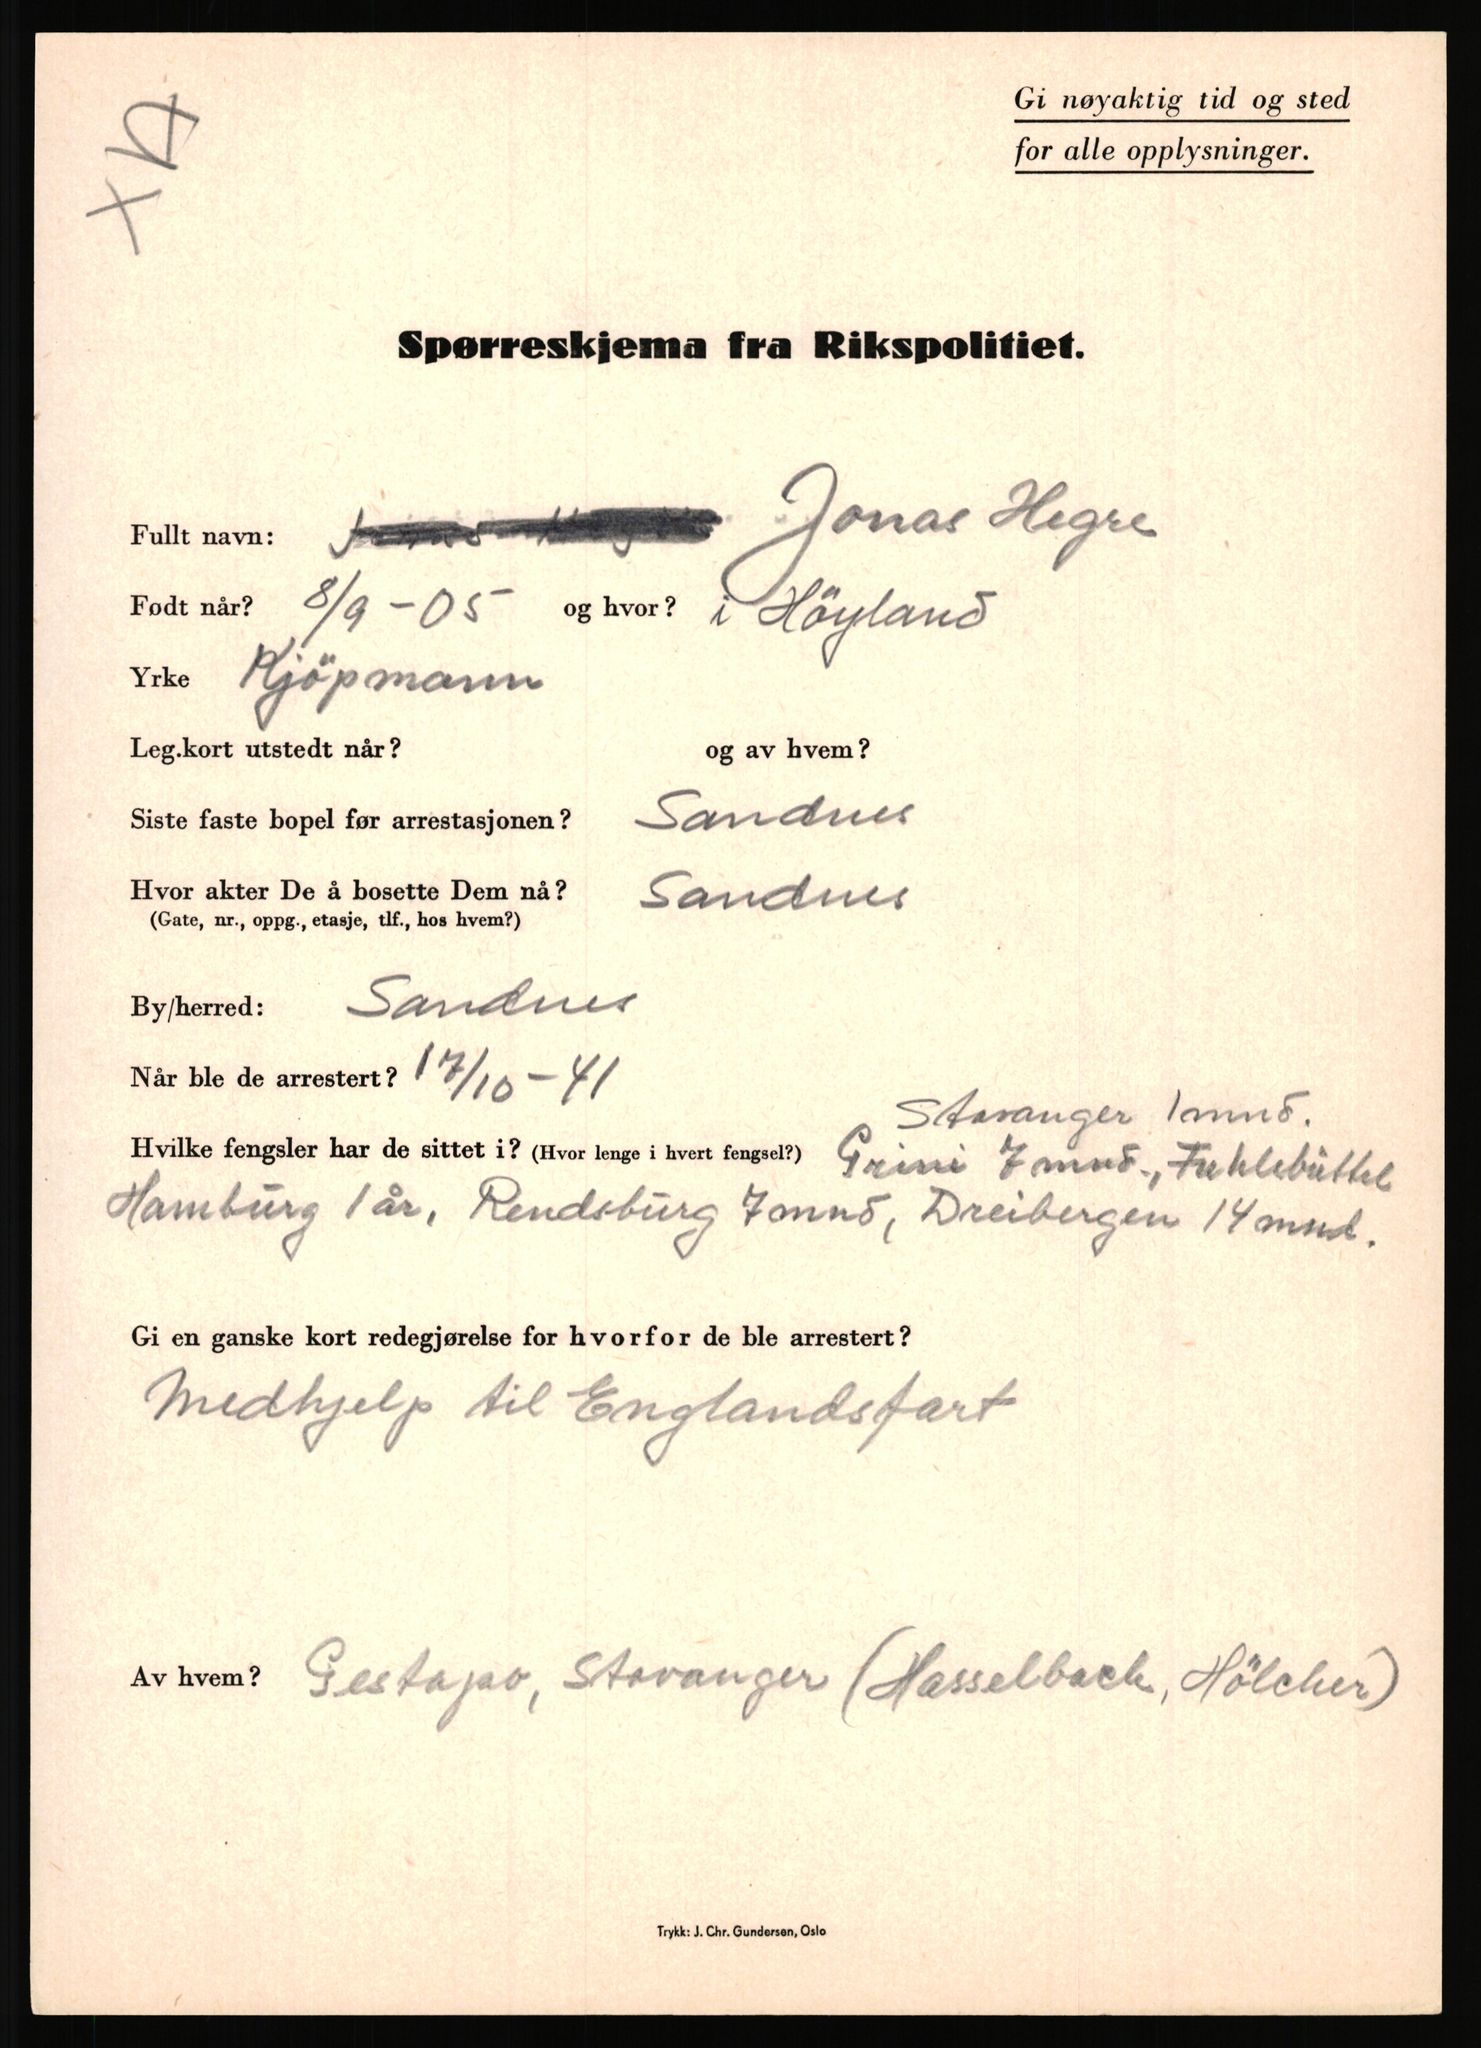 Gi nøyaktig tid og sted
for alle opplysninger.
Spørreskjema fra Rikspolitiet.
Fullt navn: Jonas Hegre
Født når? 8/9-05 og hvor? i Höyland
Yrke Kjöpmann
Leg.kort utstedt når? og av hvem?
Siste faste bopel før arrestasjonen? Sandnes
Hvor akter De å bosette Dem nå? Sandnes
(Gate, nr., oppg., etasje, tlf., hos hvem?)
By/herred: Sandnes
Når ble de arrestert? 17/10-41
Stavanger 1 mnd.
Hvilke fengsler har de sittet i? (Hvor lenge i hvert fengsel?) Grini 7 mnd., Fuhlsbüttel
Hamburg 1 år, Rendsburg 7 mnd, Dreibergen 14 mnd.
Gi en ganske kort redegjørelse for hvorfor de ble arrestert?
Medhjelp til Englandsfart
Av hvem? Gestapo, Stavanger (Hasselback, Hölcher)
Trykk: J. Chr. Gundersen, Oslo